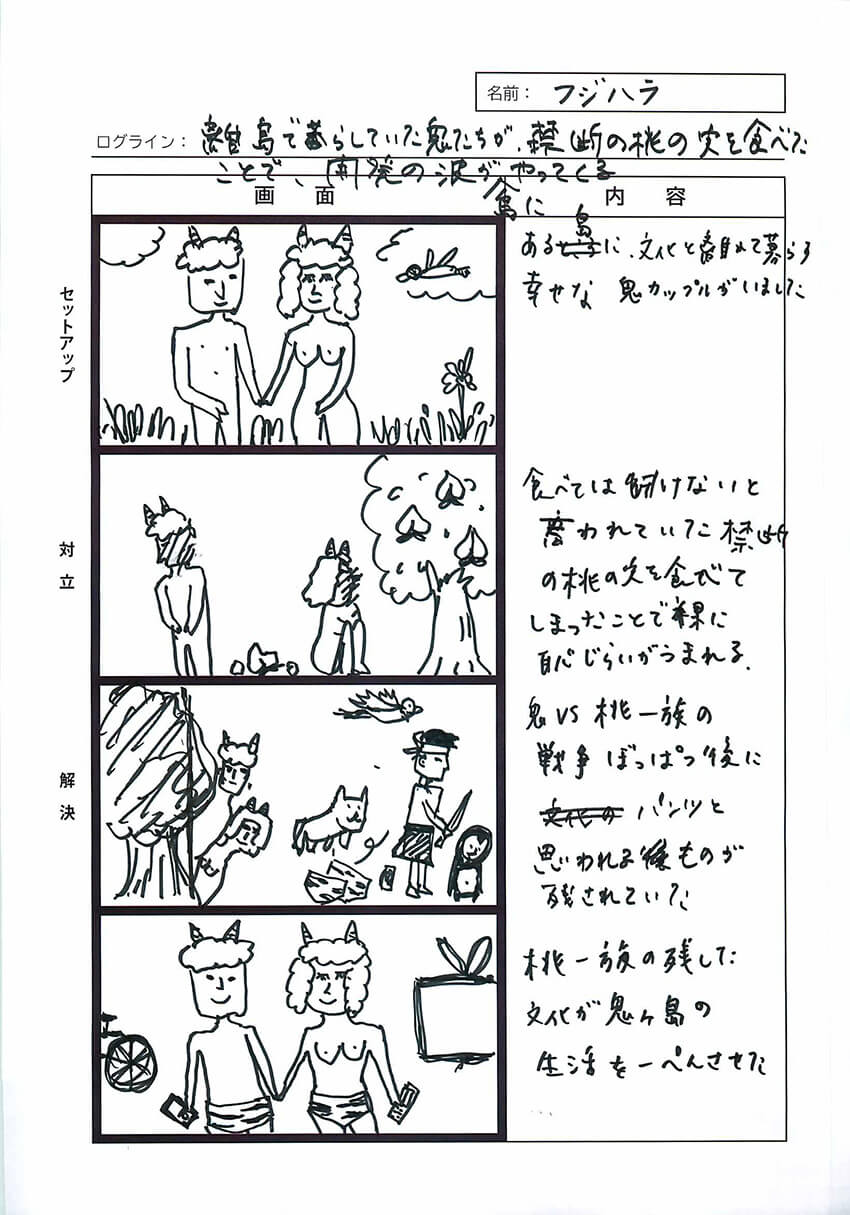 名前： フジハラ
ログライン： 離島で暮らしていた鬼たちが、禁断の桃の実を食べた
ことで、開発の波がやってくる
島に
画面
内容
セットアップ
ある島に、文化と離れて暮らす
幸せな 鬼カップルがいました
対立
食べては いけないと
言われていた禁断
の桃の実を食べて
しまったことで裸に
恥じらいがうまれる.
解決
鬼 VS 桃一族の
戦争 ぼっぱつ後に
パンツと
思われる ものが
残されていた
桃一族の残した
文化が鬼ヶ島の
生活を一ぺんさせた